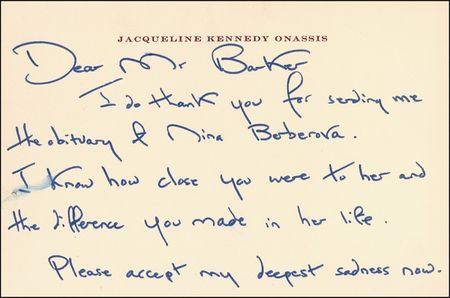 JACQUELINE KENNEDY ONASSIS
Dear Mr Barker
I do thank you for sending me
the obituary of Nina Berberova.
I know how close you were to her and
the difference you made in her life.
Please accept my deepest sadness now.